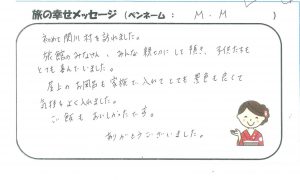 旅の幸せメッセージ（ペンネーム： M.M ）
初めて関川村を訪れました。
旅館のみなさん、みんな親切にして頂き、子供たちも
とても喜んでいました。
屋上のお風呂も家族で入れてとても景色も良くて
気持ちよく入れました。
ご飯もおいしかったです。
ありがとうございました。